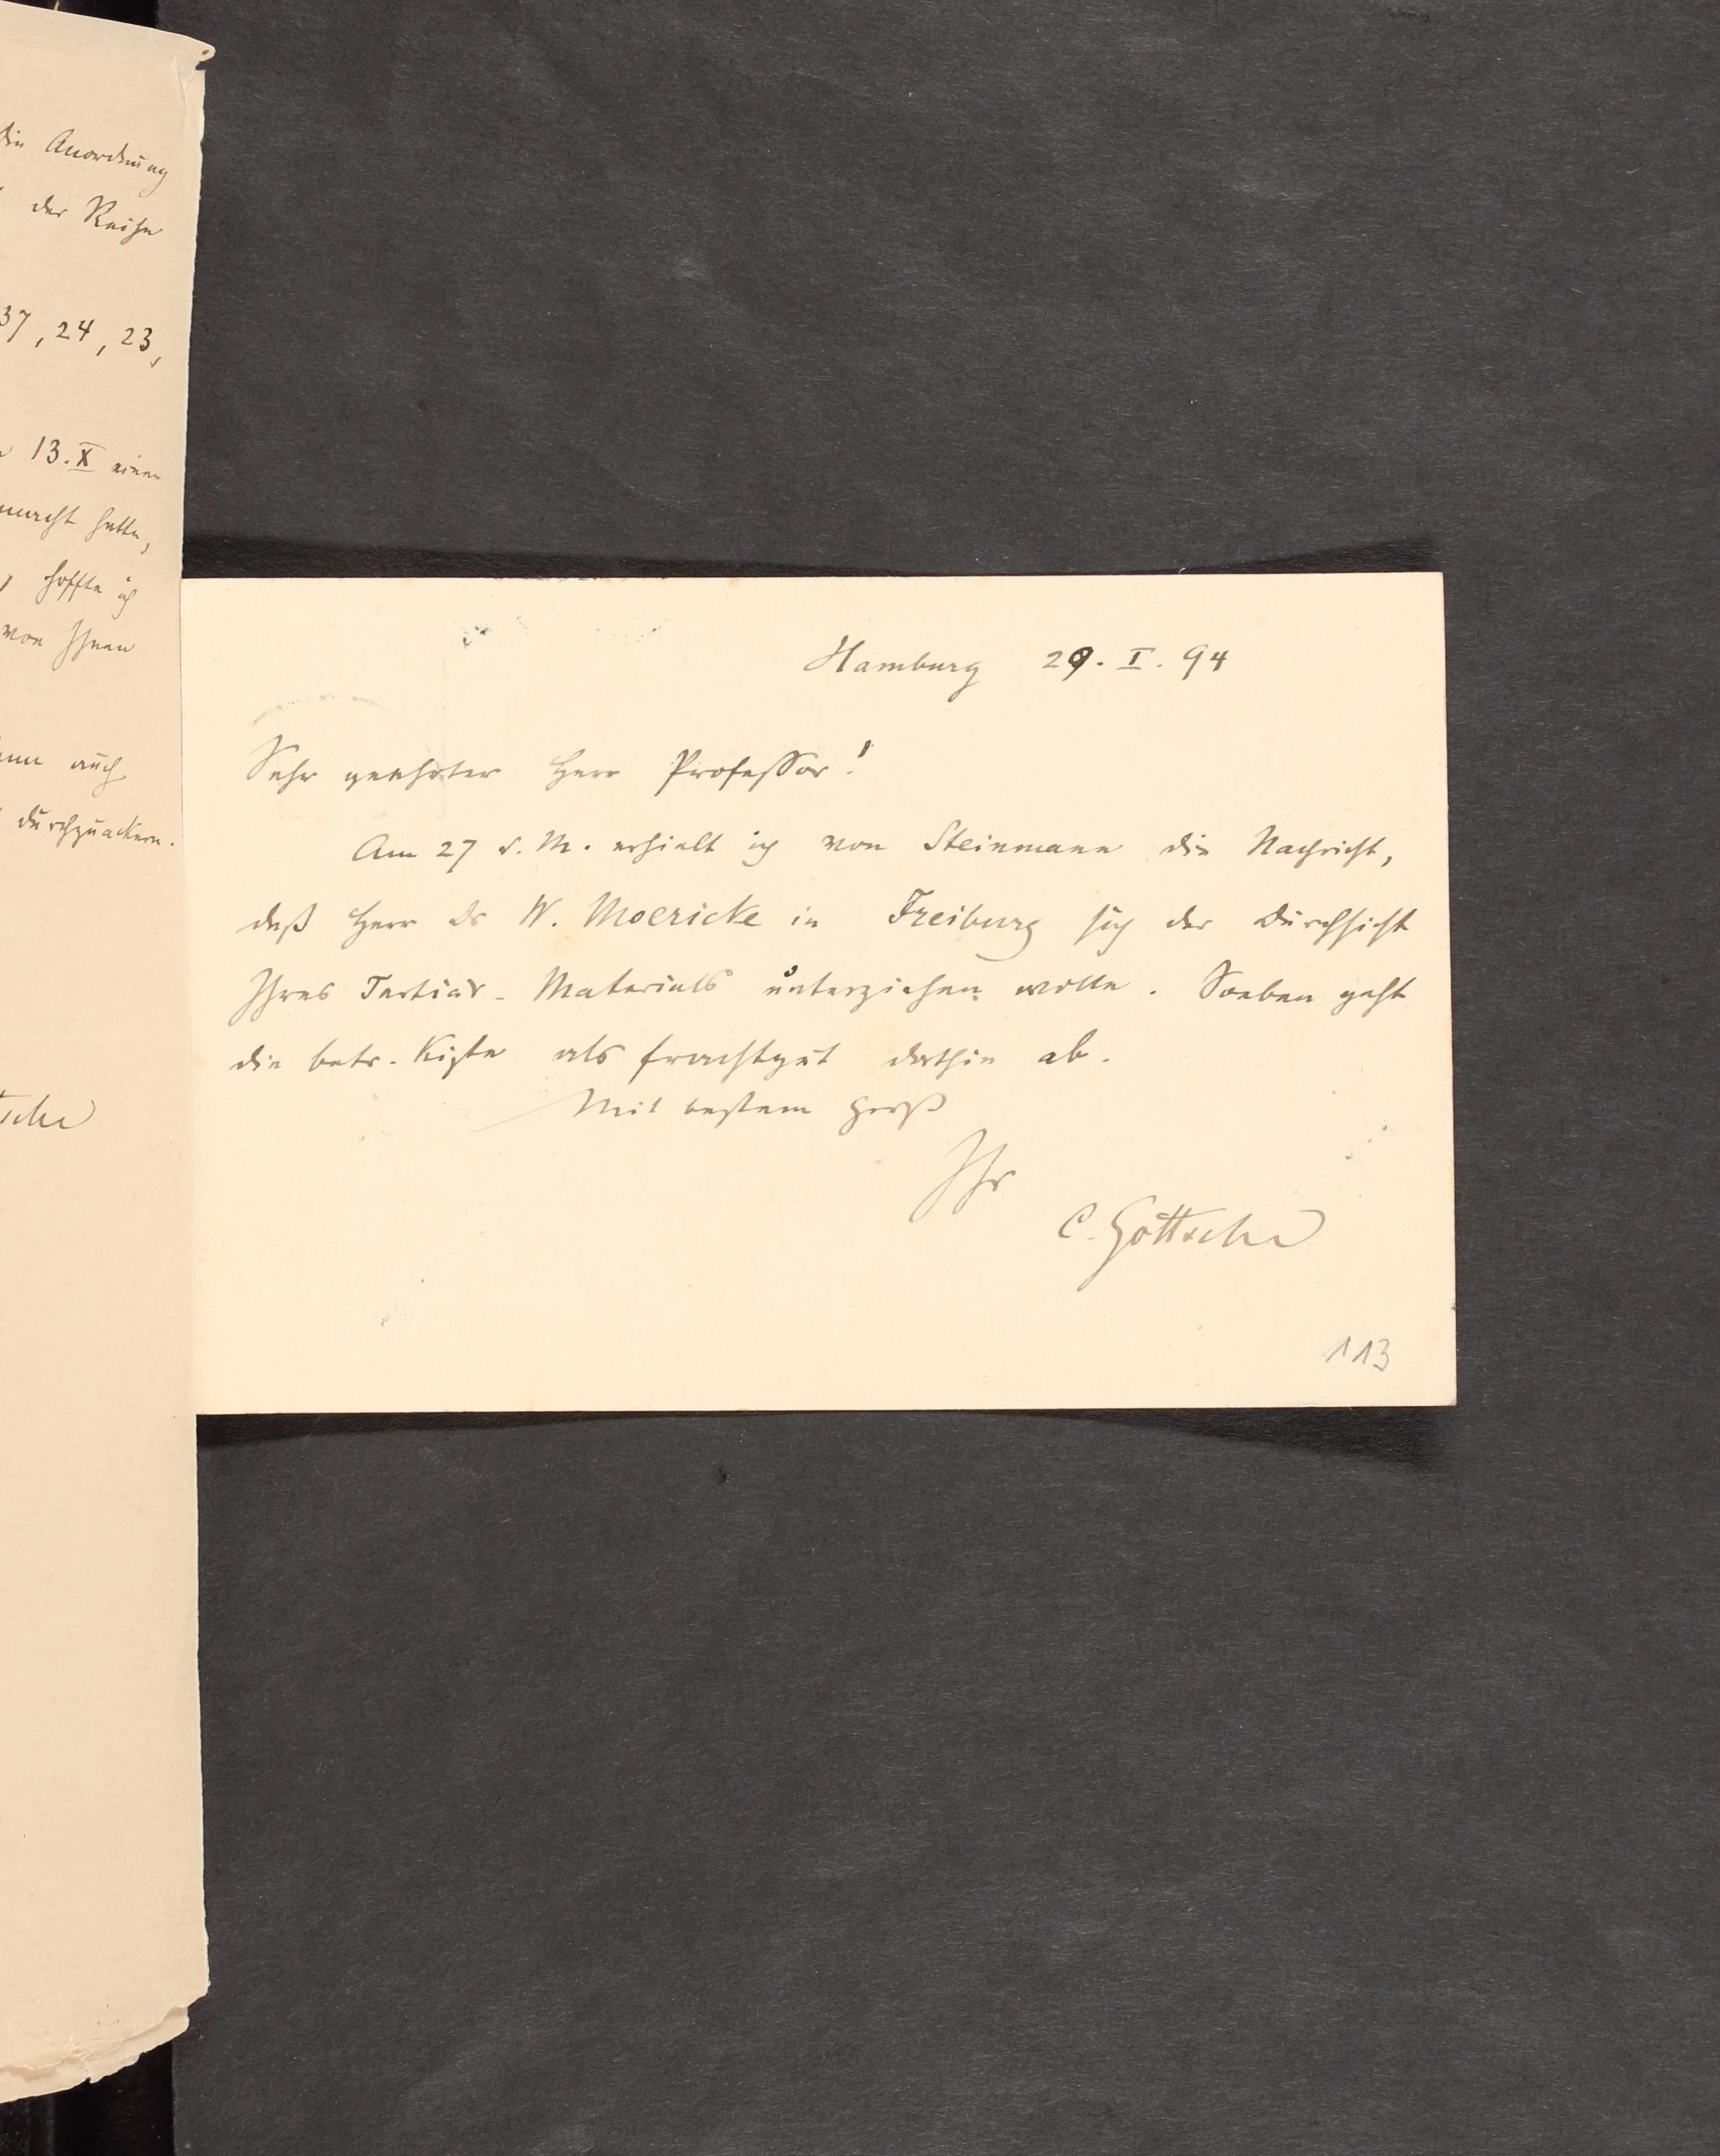 die Anordnung
der Reihe
37, 24, 23,
13. X einen
macht hatte,
hoffte ich
von Ihnen
auch
durchzuackern.
tsche
Hamburg 29. I. 94
Sehr geehrter Herr Professor!
Am 27 d. M. erhielt ich von Steinmann die Nachricht,
daß Herr Dr W. Moericke in Freiburg sich der Durchsicht
Ihres Tertiär-Materials unterziehen wolle. Soeben geht
die betr. Kiste als Frachtgut dorthin ab.
Mit bestem Gruß
Ihr
C. Gottsche
113